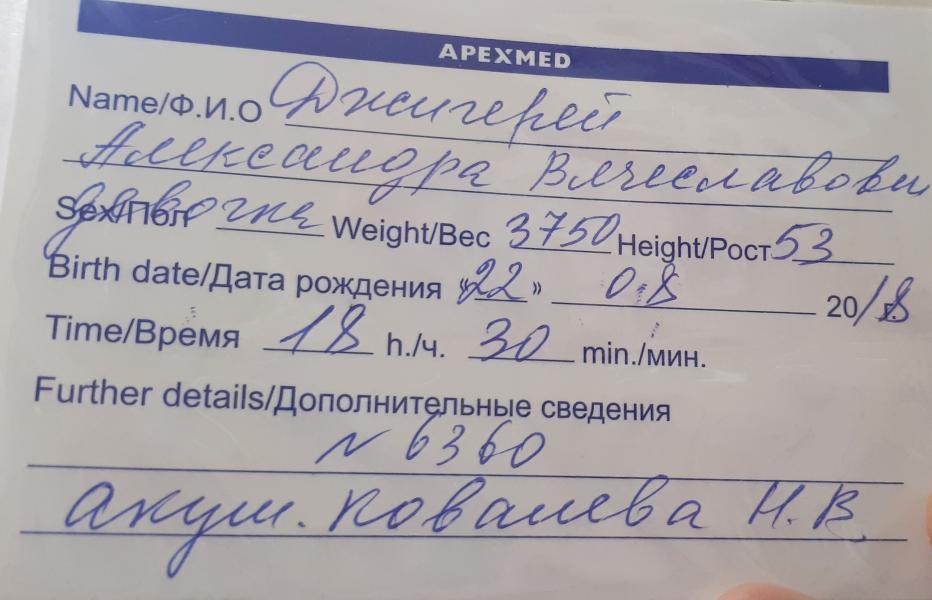 APEXMED
Name/Ф.И.О Джигерей
Александра Вячеславовн
Sex/Пол девочка Weight/Вес 3750 Height/Рост 53
Birth date/Дата рождения «22» 0.8 20/18 г.
Time/Время 18 h./ч. 30 min./мин.
Further details/Дополнительные сведения
N 6360
акуш. Ковалева Н.В